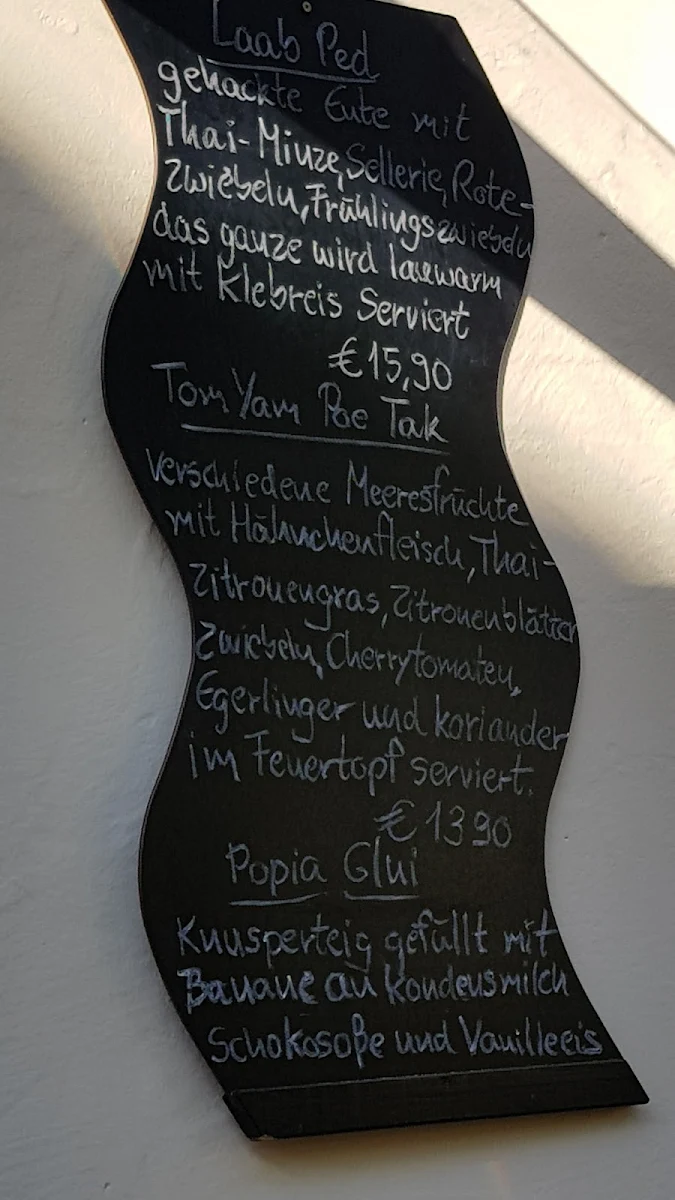 Laab Ped
gehackte Ente mit
Thai-Minze, Sellerie, Rote-
Zwiebeln, Frühlingszwiebeln
das ganze wird lauwarm
mit Klebreis Serviert
€15,90
Tom Yam Poe Tak
Verschiedene Meeresfrüchte
mit Hähnchenfleisch, Thai-
Zitronengras, Zitronenblätter
Zwiebeln, Cherrytomaten,
Egerlinger und koriander
im Feuertopf serviert.
€1390
Popia Glui
Knusperteig gefüllt mit
Banane an kondensmilch
Schokosoße und Vanilleeis